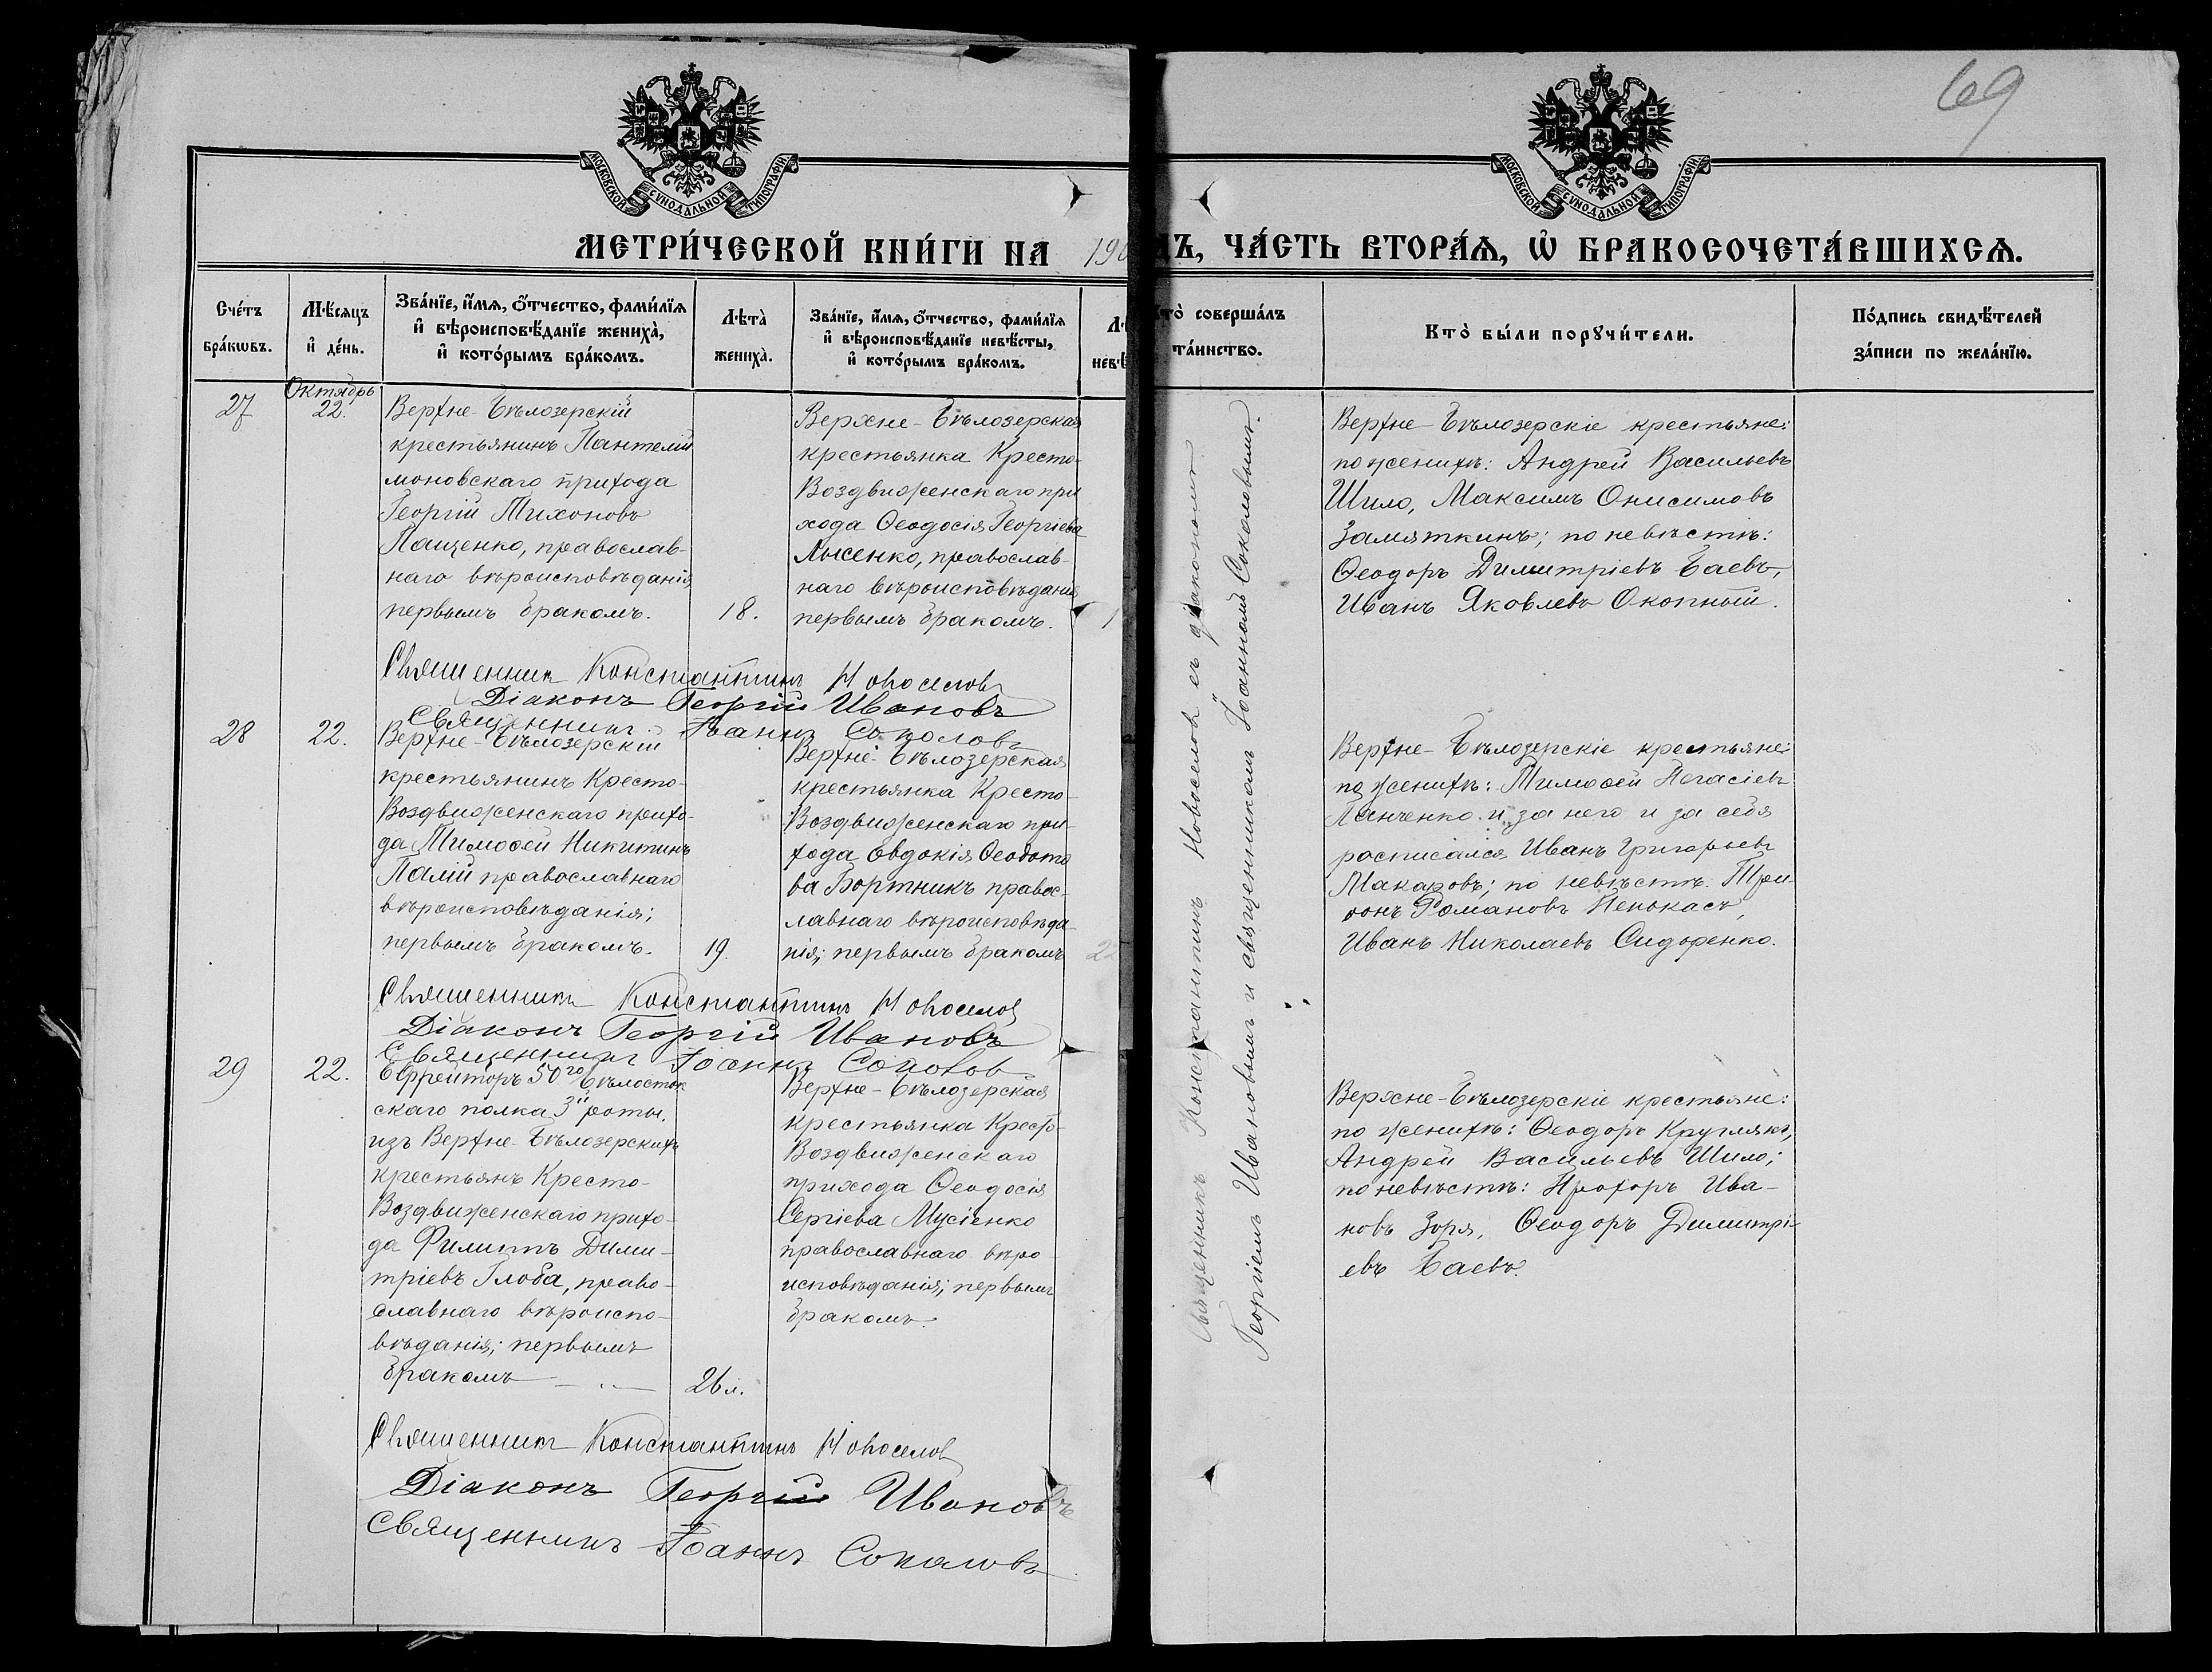 69
МОСКОВСКОЙ СѴНОДАЛЬНОЙ ТИПОГРАФІИ
МОСКОВСКОЙ СѴНОДАЛЬНОЙ ТИПОГРАФІИ
МЕТРИ́ЧЕСКОЙ КНИ́ГИ НА 190
ЧА́СТЬ ВТОРА́Ѧ, Ѡ҆ БРАКОСОЧЕТА́ВШИХСѦ.
Сче́тъ
бра́кѡвъ.
Мѣ́сѧцъ
и҆ де́нь.
Зва́нїе, и҆́мѧ, ѻ҆́тчество, фами́лїѧ
и҆ вѣроисповѣ́данїе жениха̀,
и҆ кото́рымъ бра́комъ.
Лѣта̀
жениха̀.
Зва́нїе, и҆́мѧ, ѻ҆́тчество, фами́лїѧ
и҆ вѣроисповѣ́данїе невѣ́сты,
и҆ кото́рымъ бра́комъ.
Лѣ
невѣ
то̀ соверша́лъ
та́инство.
Кто̀ бы́ли порꙋчи́тели.
По́дпись свидѣ́телей
за́писи по жела́нїю.
27
Октябрь
22.
Верхне-Бѣлозерскій
крестьянинъ Пантелій
моновскаго прихода
Георгій Тихоновъ
Пащенко, православ-
наго вѣроисповѣданія,
первымъ бракомъ.
18.
Верхне-Бѣлозерская
крестьянка Кресто-
Воздвиженскаго при
хода Ѳеодосія Георгіева
Лысенко, православ-
наго вѣроисповѣданія
первымъ бракомъ.
1
Верхне-Бѣлозерскіе крестьяне:
по женихѣ: Андрей Васильевъ
Шило, Максимъ Онисимовъ
Замяткинъ; по невѣстѣ:
Ѳеодоръ Димитріевъ Баевъ,
Иванъ Яковлевъ Окопный.
Священникъ Константинъ Новоселовъ
Діаконъ Георгій Ивановъ
Священникъ Іоаннъ Соколовъ
28
22.
Верхне-Бѣлозерскій
крестьянинъ Кресто-
Воздвиженскаго прихо-
да Тимоѳей Никитинъ
Палій православнаго
вѣроисповѣданія;
первымъ бракомъ.
19.
Верхне-Бѣлозерская
крестьянка Кресто-
Воздвиженскаго при-
хода Евдокія Ѳеодото
ва Бортникъ правос-
лавнаго вѣроисповѣда
нія; первымъ бракомъ
22
Верхне-Бѣлозерскіе крестьяне:
по женихѣ: Тимоѳей
Панченко и за него и за себя
росписался Иванъ Григорьевъ
Макаровъ; по невѣстѣ: Три-
ѳонъ Романовъ
Иванъ Николаевъ Сидоренко.
Священникъ Константинъ Новоселовъ
Діаконъ Георгій Ивановъ
Священникъ Іоаннъ Соколовъ
29
22.
Ефрейторъ 50го Бѣлосток
скаго полка 3й роты.
изъ Верхне-Бѣлозерскихъ
крестьянъ Кресто-
Воздвиженскаго прихо-
да Филиппъ Дими-
тріевъ Глоба, право-
славнаго вѣроиспо-
вѣданія; первымъ
бракомъ
26 л.
Верхне-Бѣлозерская
крестьянка Кресто-
Воздвиженскаго
прихода Ѳеодосія
Сергіева Мусіенко
православнаго вѣро
исповѣданія; первымъ
бракомъ.
Верхне-Бѣлозерскіе крестьяне:
по женихѣ: Ѳеодоръ Круглякъ,
Андрей Васильевъ Шило;
по невѣстѣ: Прохоръ Ива-
новъ Зоря, Ѳеодоръ Димитрі-
евъ Баевъ.
Священникъ Константинъ Новоселовъ
Діаконъ Георгій Ивановъ
Священникъ Іоаннъ Соколовъ
Священникъ Константинъ Новоселовъ съ діакономъ
Георгіемъ Ивановымъ и священникомъ Іоанномъ Соколовымъ.